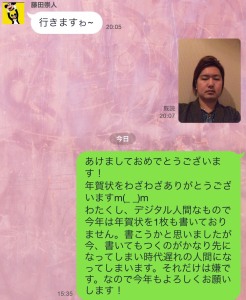 藤田崇人
行きますゎ~
20:05
既読
20:07
今日
あけましておめでとうございま
す！
年賀状をわざわざありがとうござ
いますm(_ _)m
わたくし、デジタル人間なもので
今年は年賀状を1枚も書いており
ません。書こうかと思いましたが
今、書いてもつくのがかなり先に
なってしまい時代遅れの人間に
なってしまいます。それだけは嫌で
す。なので今年もよろしくお願い
します！
15:35